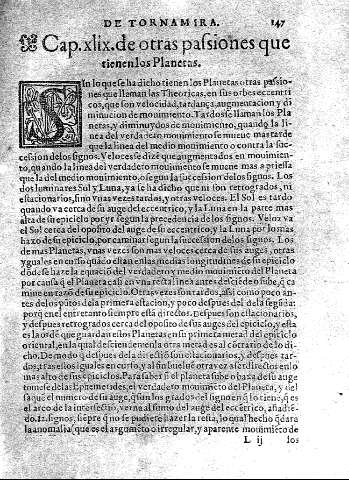 DE TORNAMIRA. 147
Cap. xlix. de otras passiones que
tienen los Planetas.
Sin lo que se ha dicho tienen los Planetas otras passio-
nes que llaman las Theoricas, en sus orbes eccentri
cos, que son velocidad, tardança, augmentacion y di
minucion de mouimento. Tardos se llaman los Pla
netas, y diminuydos de mouimento, quando la li-
nea del verdadero mouimiento se mueue mas tarde
que la linea del medio mouimiento o contra la suc-
cession de los signos. Veloces se dizē que augmentados en mouimiē-
to, quando la linea del verdadero mouimiēto se mueue mas a priessa
que la del medio mouimiento, o segun la succession de los signos. Los
dos luminares Sol y Luna, ya se ha dicho que ni son retrogrados, ni
estacionarios, sino vnas vezes tardos, y otras veloces. El Sol es tardo
quando va cerca de su auge del eccentrico, y la Luna en la parte mas
alta de su epiciclo por yr segun la precedencia de los signos. Veloz va
el Sol cerca del oposito del auge de su eccentrico, y la Luna por lo mas
baxo de su epiciclo, por caminar segun la succession de los signos. Los
de mas Planetas, vnas vezes son mas veloces cerca de sus auges, otras
yguales en su
do se haze la equaciō del verdadero y medio mouimiēto del Planeta
por causa q̄ el Planeta cae en vna recta linea
mine en
tes de los pūtos de la primera estacion, y poco despues del de la segūda:
porq̄ en el entretanto siempre està directos. Despues son estacionarios,
y despues retrogrados cerca del oposito de sus auges del epiciclo, y esta
es la ordē que guardan estos Planetas en su primera metad del epiciclo
oriental, en la qual descienden
cho. De modo q̄ despues de la
dos, tras esso iguales en curso, y al fin
mas alto de sus epiciclos. Para saber si el Planeta sube o baxa de su auge
el verdadero mouimiēto del Planeta, y de
sta que el numero de su auge, q̄ sin los grados del signo en q̄ lo tiene, q̄ es
el arco de la
do.12. signos, siepre q̄ no se pudiere hazer la resta, lo qual hecho q̄ dara
la anomalia, que es el argumēto o irregular, y aparente mouimiēto de
L ij los